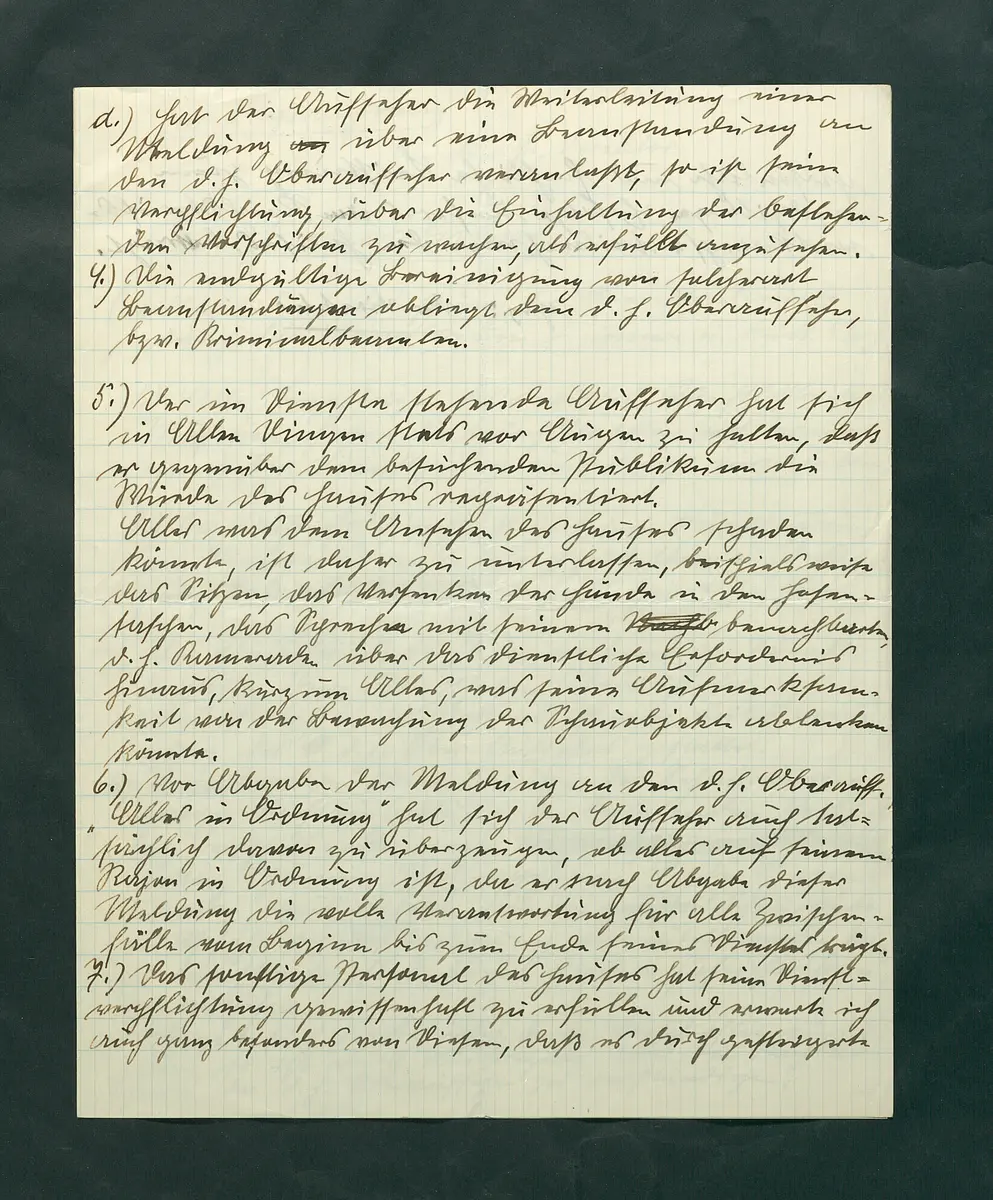 d.) Hat der Aufseher die Weiterleitung einer
Meldung an über eine Beanstandung an
den d.h. Oberaufseher veranlaßt, so ist seine
Verpflichtung, über die Einhaltung der bestehen=
den Vorschriften zu wachen, als erfüllt anzusehen.
4.) Die endgültige Bereinigung von solcherart
Beanstandungen obliegt dem d. h. Oberaufseher,
bzw. Kriminalbeamten.
5.) Der im Dienste stehende Aufseher hat sich
in Allen Dingen stets vor Augen zu halten, daß
er gegenüber dem besuchenden Publikum die
Würde des Hauses repräsentiert.
Alles was dem Ansehen des Hauses schaden
könnte, ist daher zu unterlassen, beispielsweise
das Sitzen, das Versenken der Hände in den Hosen=
taschen, das Sprechen mit seinem benachbarten,
d. h. Kameraden über das dienstliche Erfordernis
hinaus, kurzum Alles, was seine Aufmerksam-
keit von der Bewachung der Schauobjekte ablenken
könnte.
6.) Vor Abgabe der Meldung an den d.h. Oberauff.
„Alles in Ordnung" hat sich der Aufseher auch tat=
sächlich davon zu überzeugen, ob alles auf seinem
Rajon in Ordnung ist, da er nach Abgabe dieser
Meldung die volle Verantwortung für alle Zwischen=
fälle vom Beginn bis zum Ende seines Dienstes trägt.
7.) Das sonstige Personal des Hauses hat seine Dienst=
verpflichtung gewissenhaft zu erfüllen und erwarte ich
auch ganz besonders von Diesem, daß es durch gesteigerte